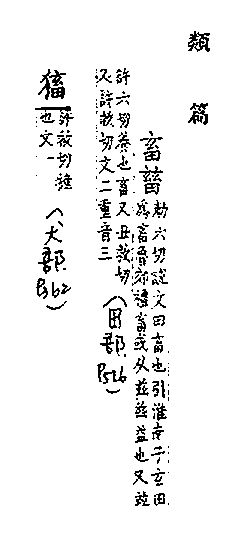 類篇
畜𤲸
勑六切說文田畜也引淮南子玄田
爲畜魯郊禮畜或从茲茲益也又竝
許六切養也畜又丑救切
又許救切文二重音三
(田部
P526)
許救切
也文一
(犬部
P362)